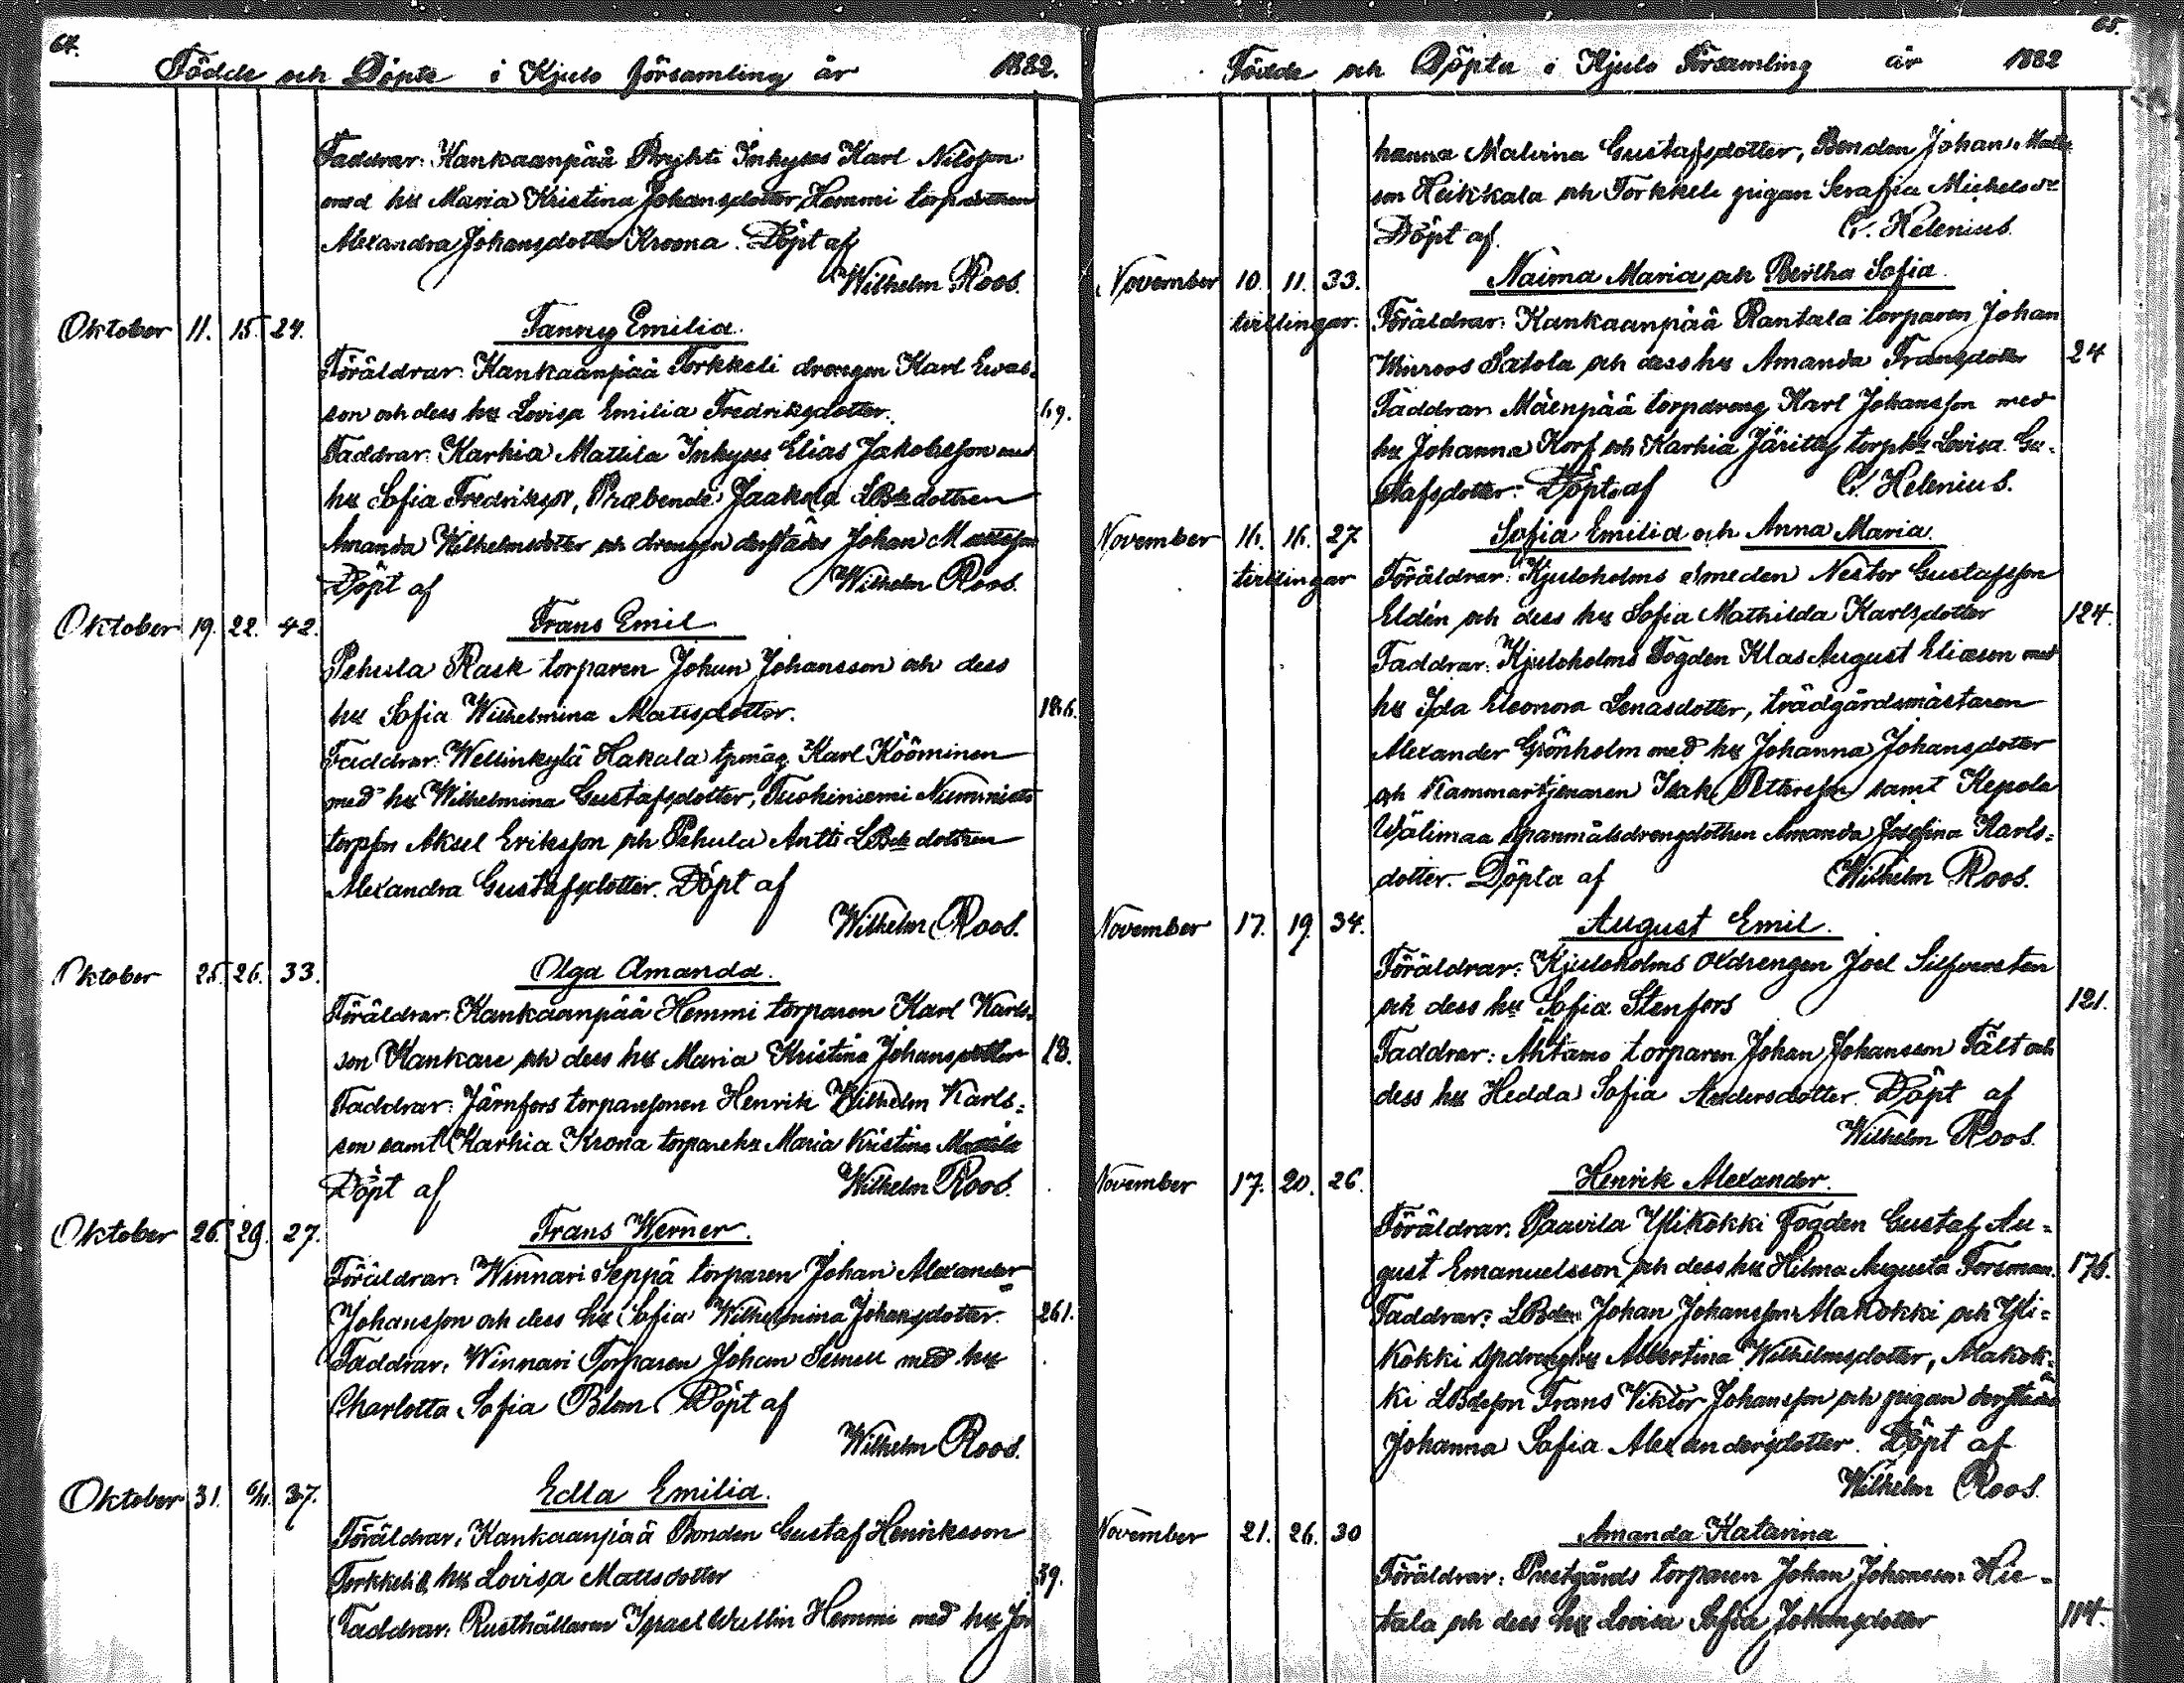 64.
Födde och Döpte i Kjulo församling år 1882.
Faddrar: Kankaanpää Pryhti Inhyses Karl Nilsson
med hu Maria Kristina Johansdotter, Hemmi torpdottren
Alexandra Johansdotter Kroona. Döpt af
Wilhelm Roos.
Oktober 11. 15. 24. Fanny Emilia.
Föräldrar: Kankaanpää Torkkeli drengen Karl Ewas-
son och dess hu Lovisa Emilia Fredriksdotter. 69.
Faddrar: Karhia Mattila Inhyses Elias Jakobsson med
hu Sofia Fredriksdr, Præbende Jaakola LBde dottren
Amanda Wilhelmsdotter och drengen derstädes Johan Mattsson
Döpt af Wilhelm Roos.
Oktober 19. 22. 42. Frans Emil
Pehula Rask torparen Johan Johansson och dess
hu Sofia Wilhelmina Matsdotter. 186.
Faddrar: Wellinkylä Hakala Karl Kööminen
med hu Wilhelmina Gustafsdotter, Tuohiniemi Nummisto
torpson Aksel Eriksson och Pehula Antti LBde dottren
Alexandra Gustafsdotter. Döpt af
Wilhelm Roos.
Oktober 25. 26. 33. Olga Amanda.
Föräldrar: Kankaanpää Hemmi torparen Karl Karls-
son Kankare och dess hu Maria Kristina Johansdotter 18.
Faddrar: Järnfors torparesonen Henrik Wilhelm Karls-
son samt Karhia Krona torparehu Maria Kristina
Döpt af Wilhelm Roos.
Oktober 26. 29. 27. Frans Werner.
Föräldrar: Winnari Seppä torparen Johan Alexander
Johansson och dess hu Sofia Wilhelmina Johansdotter. 261.
Faddrar: Winnari Torparen Johan med hu
Charlotta Sofia Blom. Döpt af
Wilhelm Roos.
Oktober 31. 37. Edla Emilia.
Föräldrar: Kankaanpää Bonden Gustaf Henriksson
Torkkeli & hu Lovisa Mattsdotter 39.
Faddrar: Rusthållaren Israel Wellin Hemmi med hu Jo
65.
Födde och Döpta i Kjulo Församling år 1882
hanna Malvina Gustafsdotter, Bonden Johan Matts
son Heikkala och Torkkeli pigan Serafia Mickelsdr
Döpt af G. Helenius.
November 10. 11. 33. Naima Maria och Bertha Sofia.
tvillingar. Föräldrar: Kankaanpää Rantala torparen Johan
Satola och dess hu Amanda Fransdotter 24
Faddrar Mäenpää torpdreng Karl Johansson med
hu Johanna Korf och Karhia Järitty torphu Lovisa Gu-
stafsdotter: Döpta af G. Helenius.
November 16. 16. 27 Sofia Emilia och Anna Maria.
tvillingar Föräldrar: Kjuloholms smeden Nestor Gustafsson
Eldén och dess hu Sofia Mathilda Karlsdotter 124.
Faddrar: Kjuloholms Fogden Klas August Eliæson med
hu Ida Eleonora Lenasdotter, trädgårdsmästaren
Alexander Grönholm med hu Johanna Johansdotter
och Kammartjenaren Isak Pettersson samt Kepola
Wälimaa Spanmålsdrengdottren Amanda Josefina Karls-
dotter. Döpta af Wilhelm Roos.
November 17. 19. 34. August Emil.
Föräldrar: Kjuloholms Oldrengen Joel Silfversten
och dess hu Sofia Stenfors 121.
Faddrar: Ahtamo torparen Johan Johansson Fält och
dess hu Hedda Sofia Andersdotter. Döpt af
Wilhelm Roos.
November 17. 20. 26. Henrik Alexander.
Föräldrar: Paavila Ylikokki Fogden Gustaf Au-
gust Emanuelsson och dess hu Hilma Augusta Forsman. 176.
Faddrar: LBden Johan Johansson Makokki och Yli-
kokki Spdrenghu Albertina Wilhelmsdotter, Makok-
ki LBdeson Frans Viktor Johansson och pigan derstädes
Johanna Sofia Alexandersdotter. Döpt af
Wilhelm Roos.
November 21. 26. 30 Amanda Katarina
Föräldrar: Prestgårds torparen Johan Johansson Hie-
tala och dess hu Lovisa Sofia Johansdotter 114.